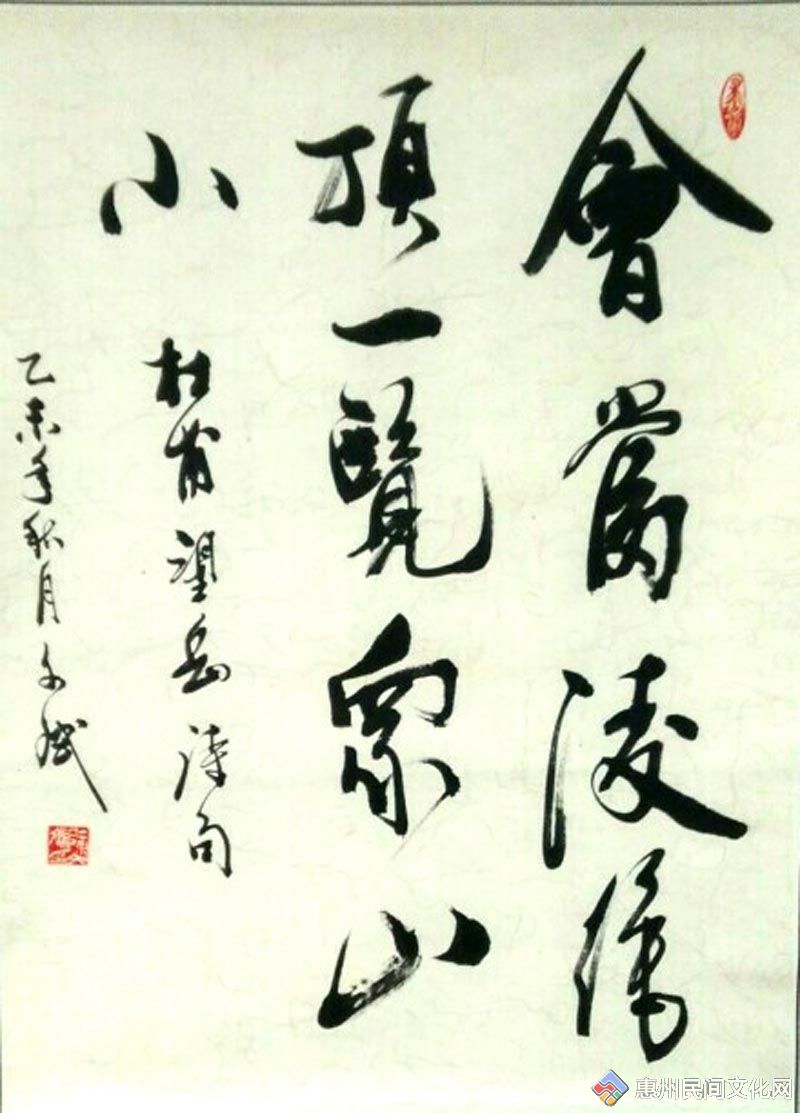 會當凌絕
頂一覽衆山
小
杜甫望岳詩句
乙未年秋月文斌
惠州民间文化网